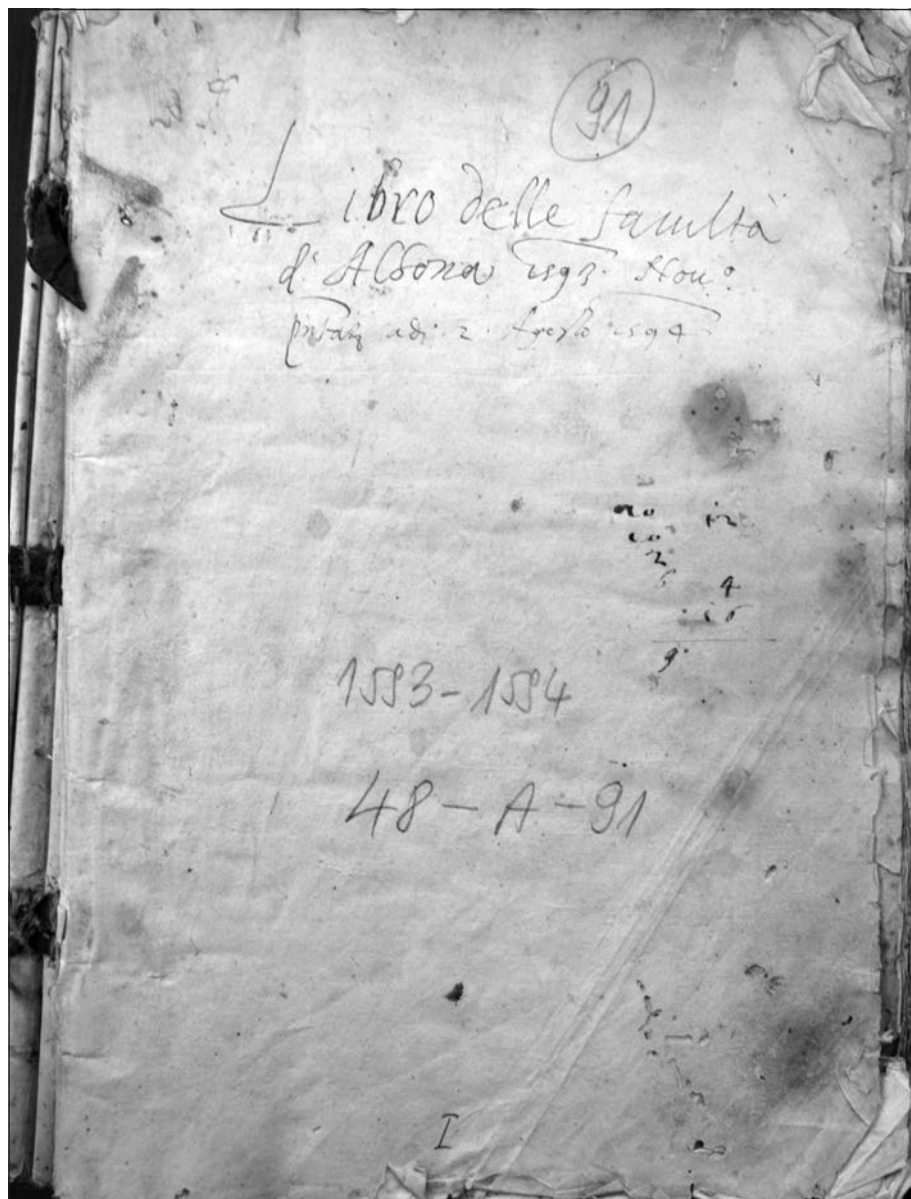 91
Libro delle facultà
d'Albona 1593. Nou.º
adi 2. Agosto 1594
20 12
10
2
4
16
9
1593-1594
48-A-91
I